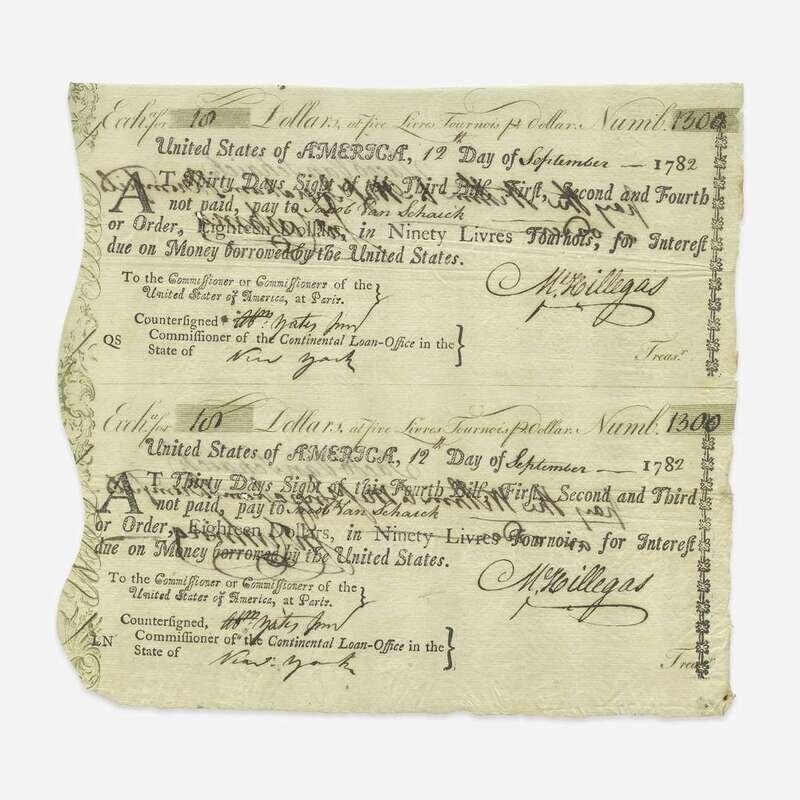 Exchᵃ for 18 Dollars, at five Livres Tournois pʳ Dollar. Numb. 1300
United States of AMERICA, 12ᵗʰ Day of September — 1782
AT Thirty Days Sight of this Third Bill, Firſt, Second and Fourth
not paid, pay to Jacob Van Schaick
or Order, Eighteen Dollars, in Ninety Livres Tournois, for Intereſt
due on Money borrowed by the United States.
To the Commiſſioner or Commiſſioners of the
United States of America, at Paris.}
M. Hillegas
Counterſigned Abᵐ. Yates Junʳ
QS Commiſſioner of the Continental Loan-Office in the
State of New York }
Treasʳ
Exchᵃ for 18 Dollars, at five Livres Tournois pʳ Dollar. Numb. 1300
United States of AMERICA, 12ᵗʰ Day of September — 1782
AT Thirty Days Sight of this Fourth Bill, Firſt, Second and Third
not paid, pay to Jacob Van Schaick
or Order, Eighteen Dollars, in Ninety Livres Tournois, for Intereſt
due on Money borrowed by the United States.
To the Commiſſioner or Commiſſioners of the
United States of America, at Paris.}
M. Hillegas
Counterſigned, Abᵐ Yates Junʳ
LN Commiſſioner of the Continental Loan-Office in the
State of New York }
Treasʳ